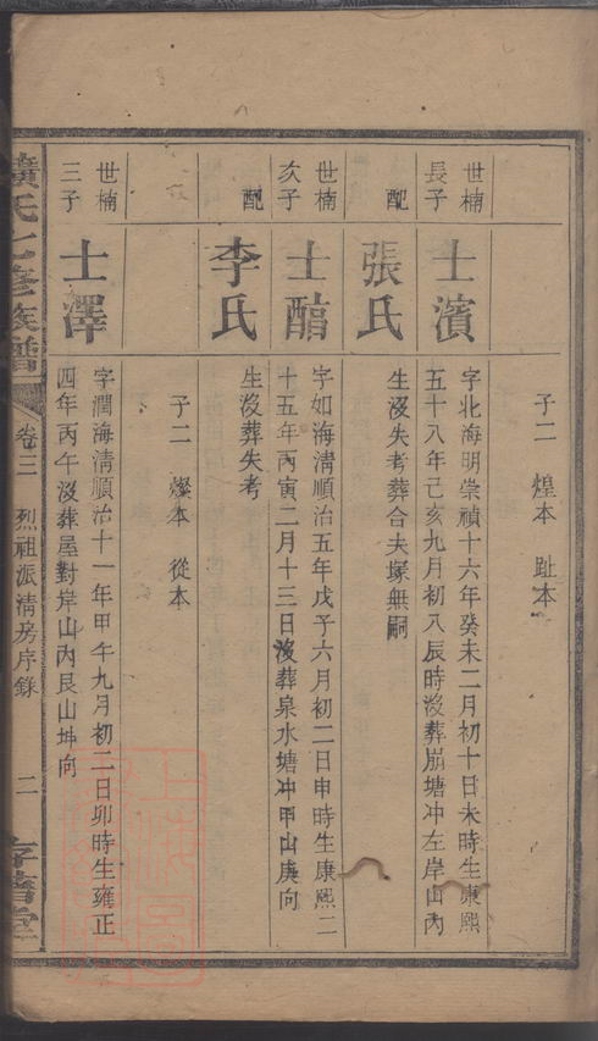 子二 煌本 趾本
世楠
長子
士濱
字北海明崇禎十六年癸未二月初十日未時生康熙
五十八年己亥九月初八辰時沒葬崩塘冲左岸山內
配
張氏
生沒失考葬合夫塚無嗣
世楠
次子
士醕
字如海清順治五年戊子六月初二日申時生康熙二
十五年丙寅二月十三日沒葬泉水塘冲甲山庚向
配
李氏
生沒葬失考
子二 燦本 從本
世楠
三子
士澤
字潤海清順治十一年甲午九月初二日卯時生雍正
四年丙午沒葬屋對岸山內艮山坤向
氏七修族譜
卷三 烈祖派清房序錄
二